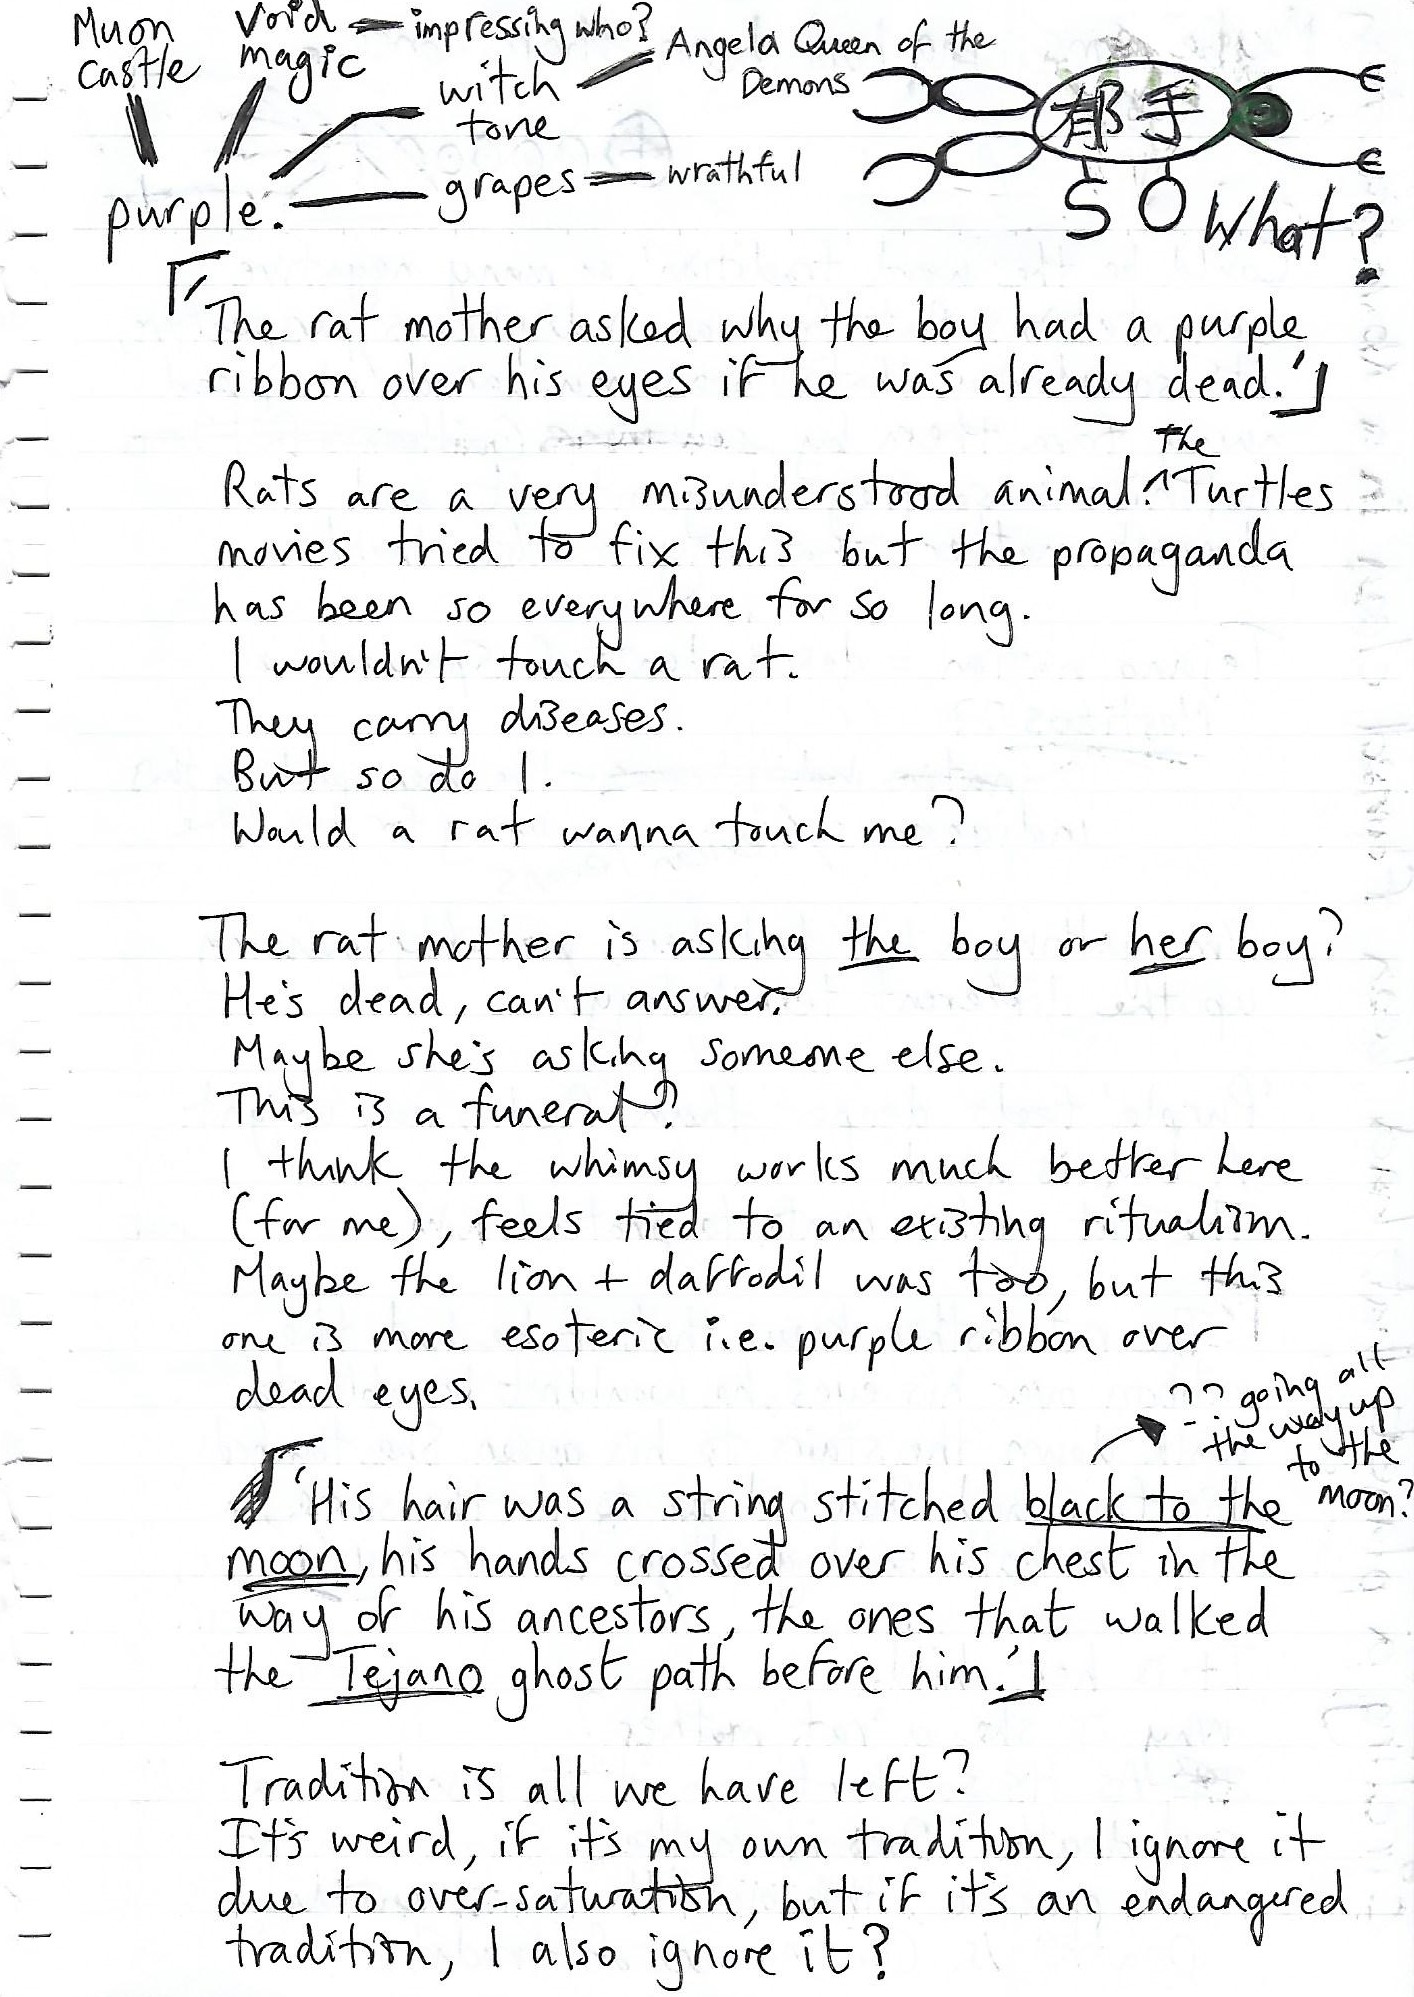 Muon
Castle
Void
magic
impressing who?
witch
tone
Angela Queen of the
Demons
grapes
wrathful
purple.
郁手
SO What?
「'The rat mother asked why the boy had a purple
ribbon over his eyes if he was already dead.'」
the
Rats are a very misunderstood animal. ^ Turtles
movies tried to fix this but the propaganda
has been so everywhere for so long.
I wouldn't touch a rat.
They carry diseases.
But so do I.
Would a rat wanna touch me?
The rat mother is asking the boy or her boy?
He's dead, can't answer.
Maybe she's asking someone else.
This is a funeral?
I think the whimsy works much better here
(for me), feels tied to an existing ritualism.
Maybe the lion + daffodil was too, but this
one is more esoteric i.e. purple ribbon over
dead eyes.
?? going all
the way up
to the
moon?
「'His hair was a string stitched black to the
moon, his hands crossed over his chest in the
way of his ancestors, the ones that walked
the Tejano ghost path before him.'」
Tradition is all we have left?
It's weird, if it's my own tradition, I ignore it
due to over-saturation, but if it's an endangered
tradition, I also ignore it?